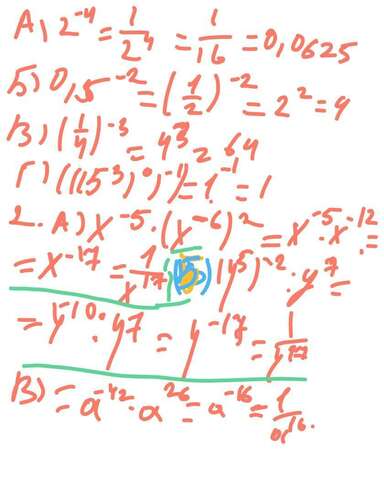 А) 2^-4 = 1/2^4 = 1/16 = 0,0625
Б) 0,5^-2 = (1/2)^-2 = 2^2 = 4
В) (1/4)^-3 = 4^3 = 64
Г) (((15^3)^0)^-1 = 1^-1 = 1
2. А) x^-5 · (x^-6)^2 = x^-5 · x^-12 =
= x^-17 = 1/x^17 Б) (y^5)^-2 · y^7 =
= y^-10 · y7 = y^-17 = 1/y^17
В) = a^-42 · a^26 = a^-16 = 1/a^16.